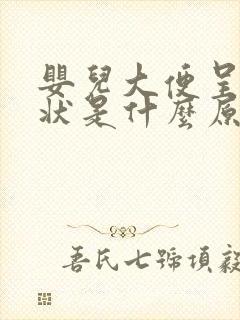 嬰兒大便呈
狀是什麼原
吾氏七號項毅